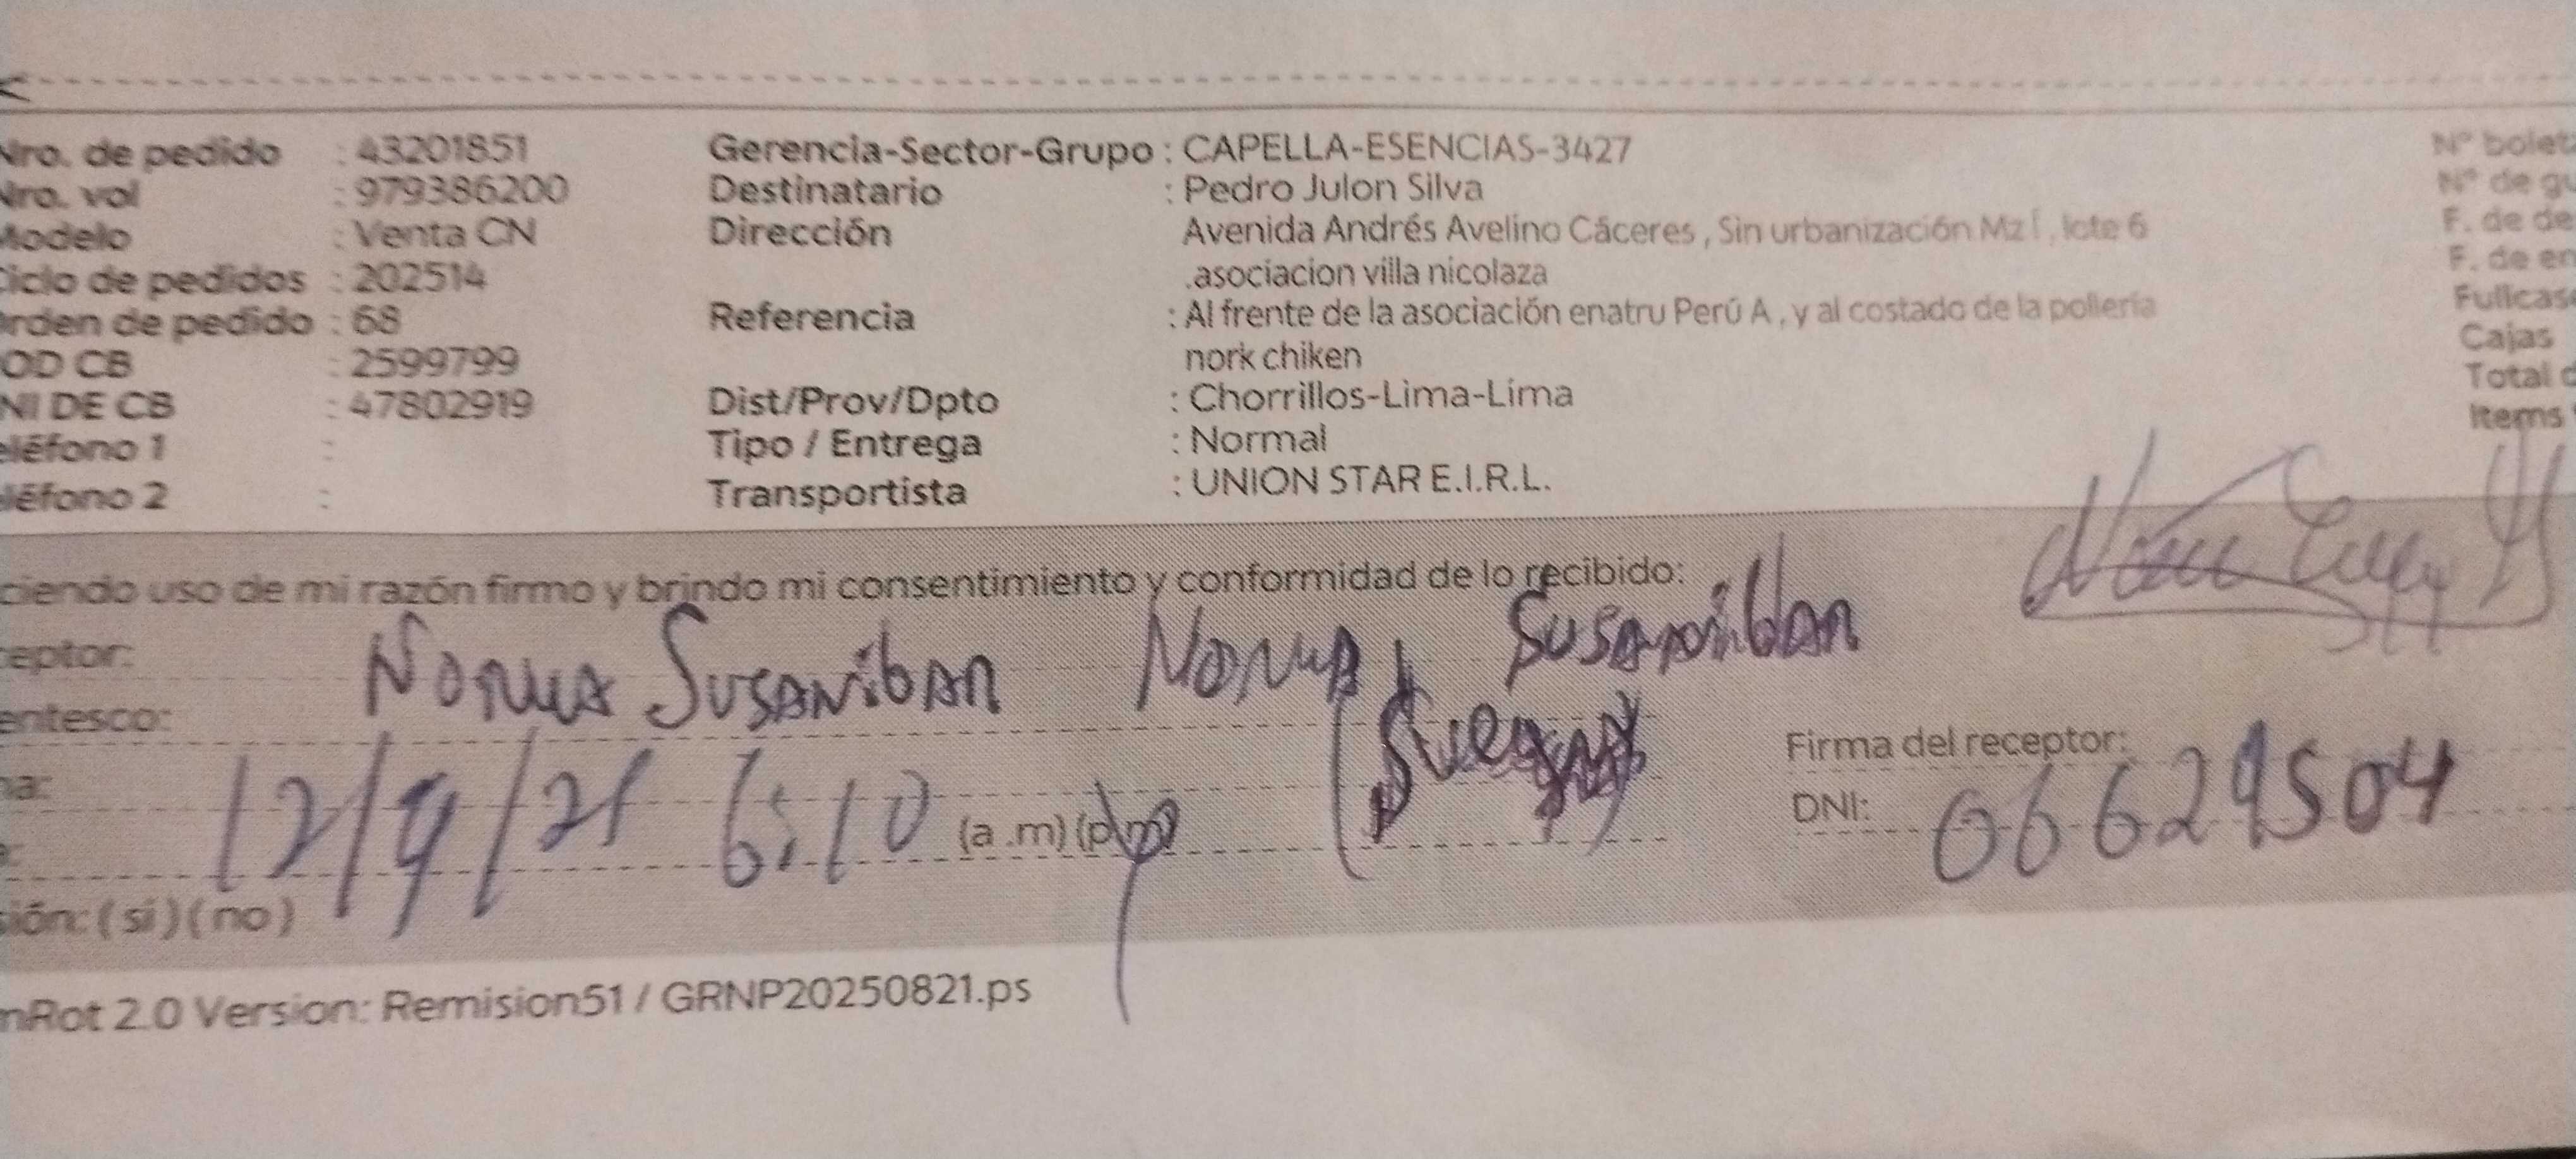 Nro. de pedido : 43201851 Gerencia-Sector-Grupo : CAPELLA-ESENCIAS-3427 Nº bolet
Nro. vol : 979386200 Destinatario : Pedro Julon Silva Nº de gu
Modelo : Venta CN Dirección Avenida Andrés Avelino Cáceres , Sin urbanización Mz , lote 6 F. de de
Ciclo de pedidos : 202514 .asociacion villa nicolaza F. de en
rden de pedido : 68 Referencia : Al frente de la asociación enatru Perú A , y al costado de la pollería Fullcas
OD CB : 2599799 nork chiken Cajas
NI DE CB : 47802919 Dist/Prov/Dpto : Chorrillos-Lima-Lima Total d
eléfono 1 : Tipo / Entrega : Normal Items
léfono 2 : Transportista : UNION STAR E.I.R.L.
ciendo uso de mi razón firmo y brindo mi consentimiento y conformidad de lo recibido:
eptor: Norma Susaniban Norma Susaniban
entesco: (Suegra) Firma del receptor:
ha: 12/9/25 6:10 (a .m) (p.m) DNI: 06629504
sión: ( si ) ( no )
mRot 2.0 Version: Remision51 / GRNP20250821.ps